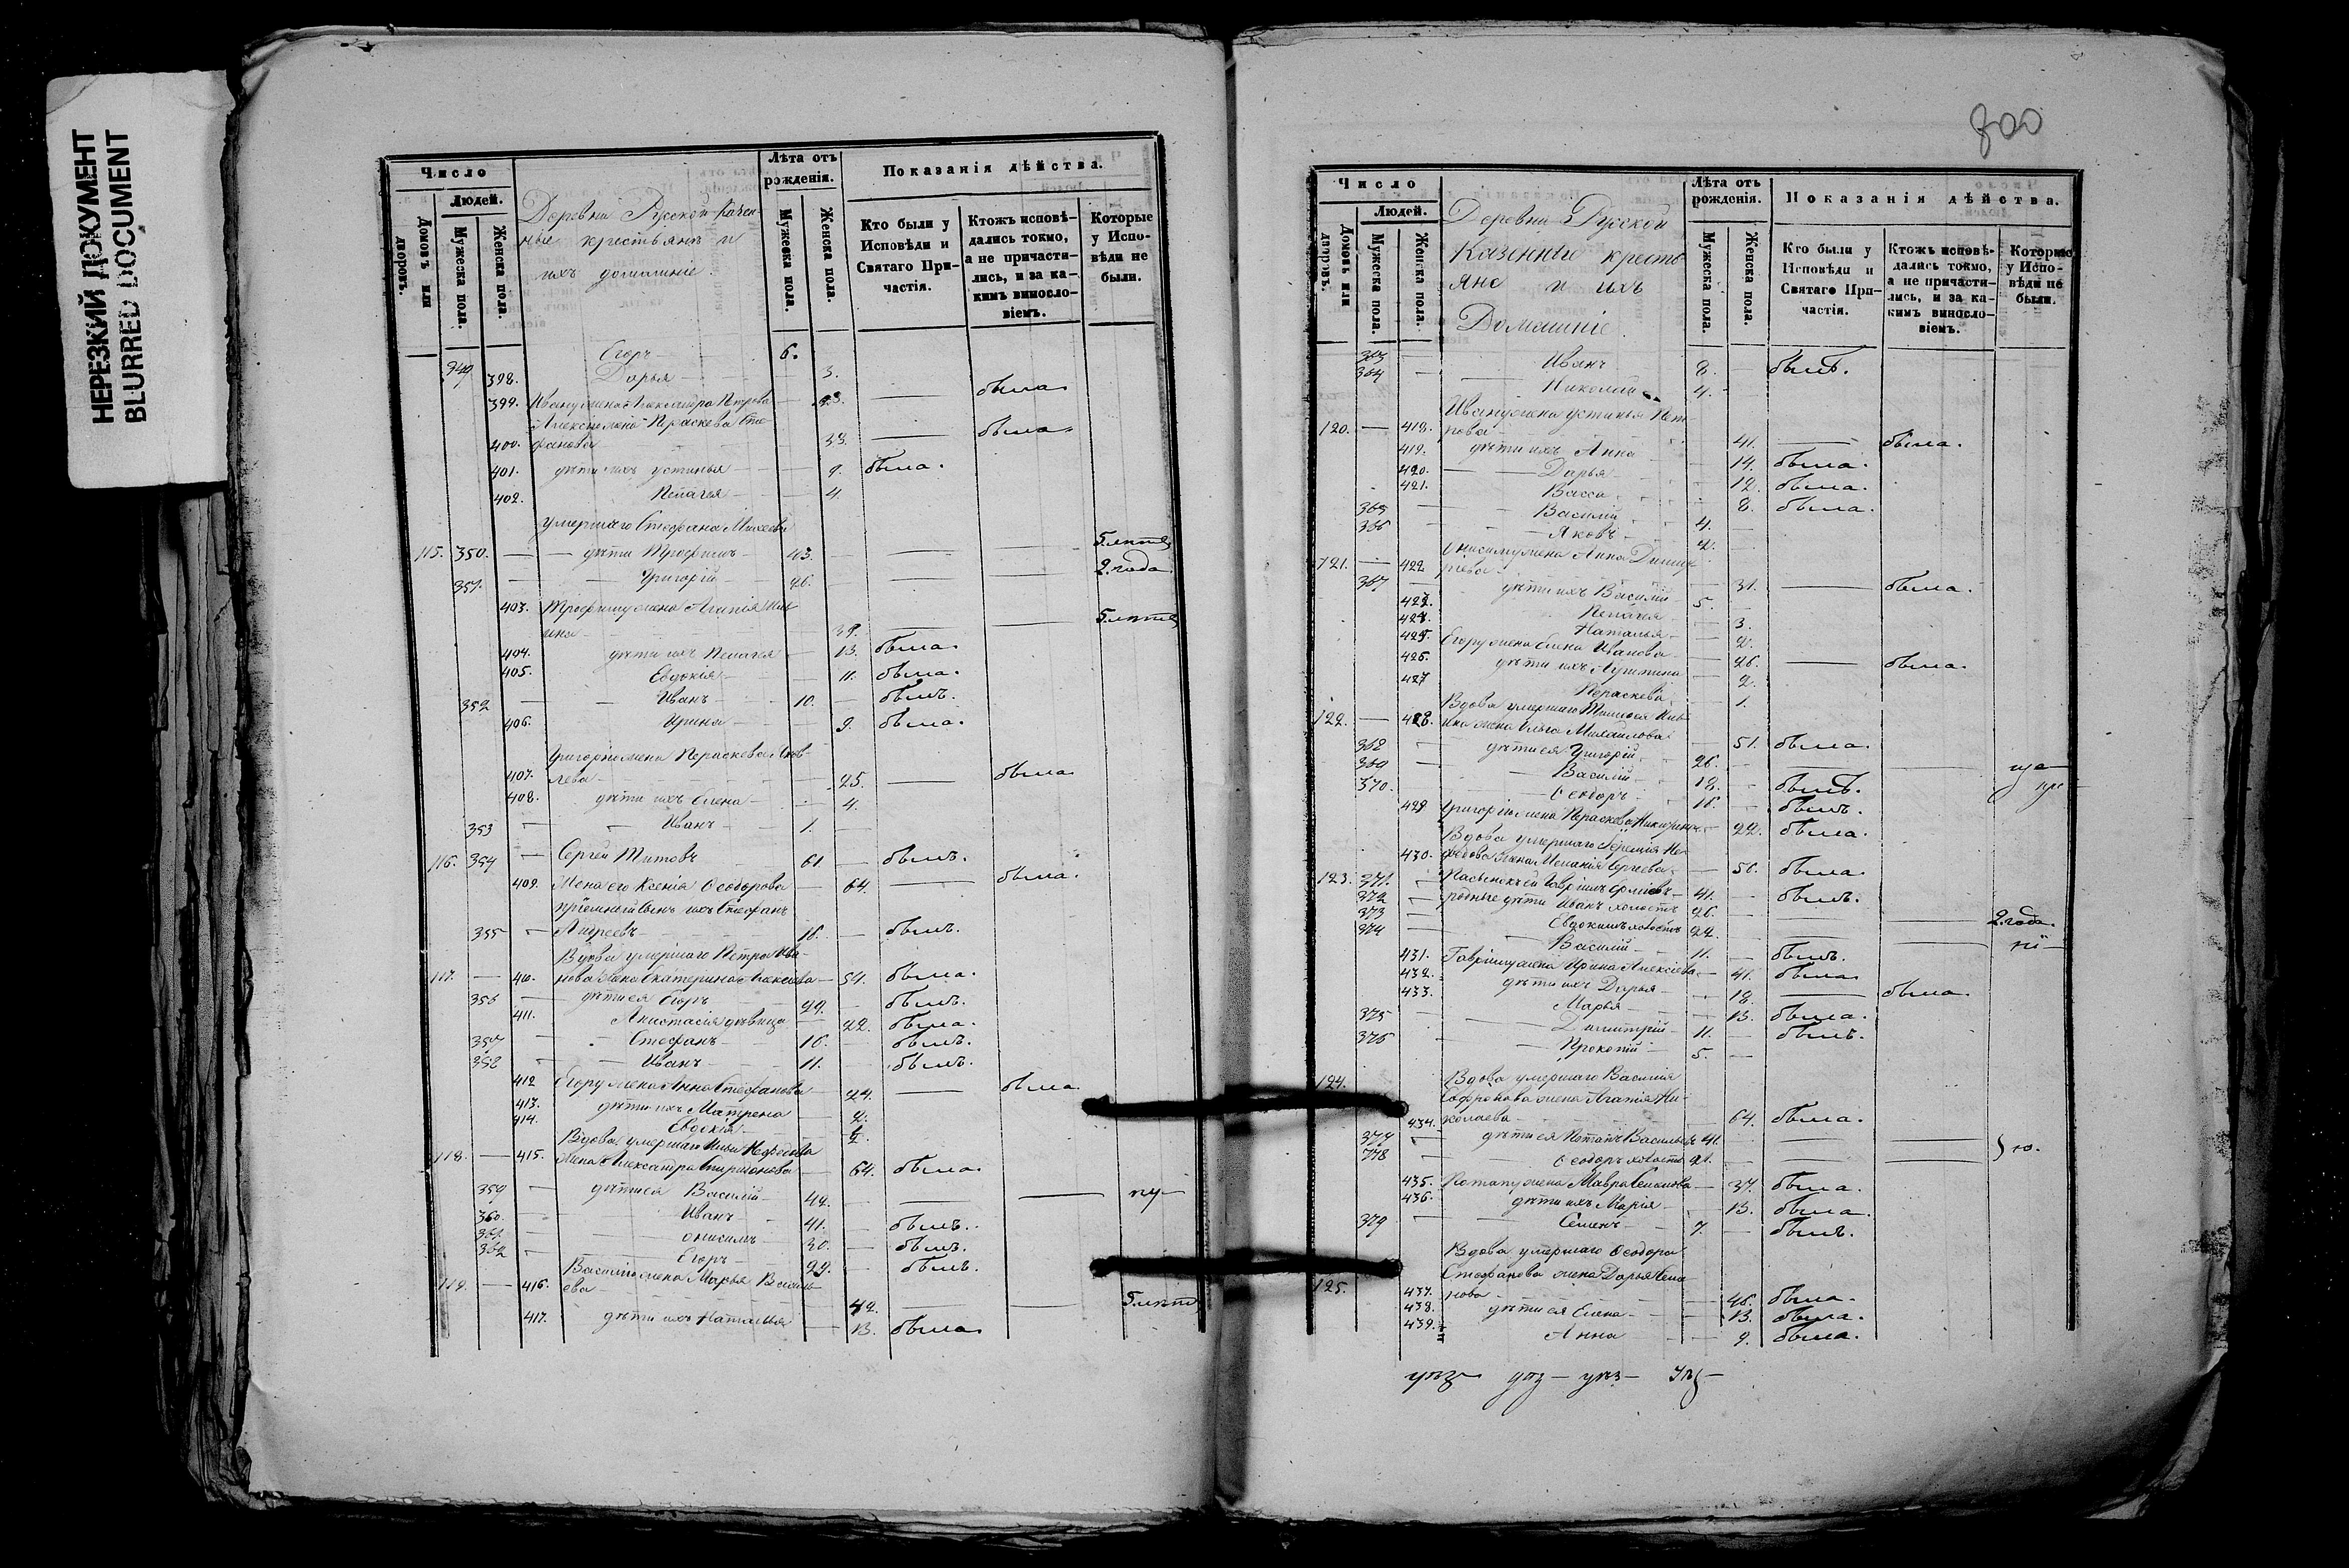 НЕРЕЗКИЙ ДОКУМЕНТ
BLURRED DOCUMENT
Число
Людей.
Домовъ или дворовъ.
Мужеска пола.
Женска пола.
Деревни Русской Казен-
ные крестьяне и
ихъ домашніе.
Лѣта отъ рожденія.
Мужеска пола.
Женска пола.
Показанія дѣйства.
Кто были у Исповѣди и Святаго Причастія.
Ктожъ исповѣдались токмо, а не причастились, и за какимъ винословіемъ.
Которые у Исповѣди не были.
349 Егоръ 6.
398. Дарья 3.
399. Ивану жена Александра Петрова 23. была
Алексѣю жена Параскева Сте-
400. фанова 33. была
401. дѣти ихъ Устинья 9. была.
402. Пелагея 4.
умершаго Стефана Михеева
115. 350. дѣти Трофимъ 43. 5. лѣтъ
351. Григорій 26. 2. года
403. Трофиму жена Агапія Иль
ина 39. 5. лѣтъ
404. дѣти ихъ Пелагея 13. была
405. Евдокія 11. была.
352 Иванъ 10. былъ.
406. Ирина 9. была.
Григорію жена Параскева Яков-
407. лева 25. была
408. дѣти ихъ Елена 4.
353 Иванъ 1.
116. 354 Сергей Титовъ 61 былъ.
409. Жена его Ксенія Ѳеодорова 64. была.
пріемный сынъ ихъ Стефанъ
355 Андреевъ 16. былъ.
Вдова умершаго Петра Ива-
117. 410. нова жена Екатерина Алексіева 54. была.
356 дѣти ея Егоръ 29. былъ.
411. Анастасія дѣвица 22. была.
357 Стефанъ 16. былъ.
358 Иванъ 11. былъ.
412 Егору жена Анна Стефанова 24. была
413. дѣти ихъ Матрена 2.
414. Евдокія
Вдова умершаго Ильи Нефедова
118. 415. жена Александра Спиридонова 64. была.
359 дѣти ея Василій 44.
360. Иванъ 41. былъ.
361 Онисимъ 30. былъ.
362 Егоръ 29. былъ.
Василію жена Марья Василь-
119. 416. ева 42. 5. лѣтъ
417. дѣти ихъ Наталья 13. была
800
Число
Людей.
Домовъ или дворовъ.
Мужеска пола.
Женска пола.
Деревни Русской
Казенные кресть
яне и ихъ
Домашніе.
Лѣта отъ рожденія.
Мужеска пола.
Женска пола.
Показанія дѣйства.
Кто были у Исповѣди и Святаго Причастія.
Ктожъ исповѣдались токмо, а не причастились, и за какимъ винословіемъ.
Которые у Исповѣди не были.
363 Иванъ 8. былъ.
364 Николай 4.
Ивану жена Устинья Пет-
120. 418. рова 41. была.
419. дѣти ихъ Анна 14. была.
420. Дарья 12. была.
421. Васса 8. была.
365 Василій 4.
366 Яковъ 2.
Онисиму жена Анна Димит
121. 422 ріева 31. была.
367 дѣти ихъ Василій 5.
423. Пелагея 3.
424. Наталья 2.
425. Егору жена Елена Иванова 26. была.
426. дѣти ихъ 2.
427 Параскева 1.
Вдова умершаго Тимофея Иль
122. 428. ина жена Ольга Михаилова 51. была.
368 дѣти ея Григорій 26.
369 Василій 18. былъ.
370. Ѳеодоръ 16. былъ.
429 Григорію жена Параскева 22. была.
Вдова умершаго Іереміи Не-
430. федова жена Меланія Сергеева 56. была
123. 371. Пасынокъ ей Гавріилъ 41. былъ.
372 родные дѣти Иванъ холостъ 26. 2. года
373 Евдокимъ холостъ 22.
374 Василій 11. былъ.
431. Гавріилу жена Ирина Алексіева 41. была
432. дѣти ихъ Дарья 18. была.
433. Марья 13. была.
375 Димитрій 11. былъ.
376 Прокопій 5.
Вдова умершаго Василія
124. Софронова жена Агапія Ни-
434. колаева 64. была.
377 дѣти ея Потапъ Васильевъ 41.
378 Ѳеодоръ холостъ 21.
435. Потапу жена Мавра Семенова 37. была.
436. дѣти ихъ Марія 13. была.
379 Семенъ 7. былъ.
Вдова умершаго Ѳеодора
Стефанова жена Дарья Семе
125. 437. нова 46. была.
438. дѣти ея Елена 13. была.
439. Анна 9. была.